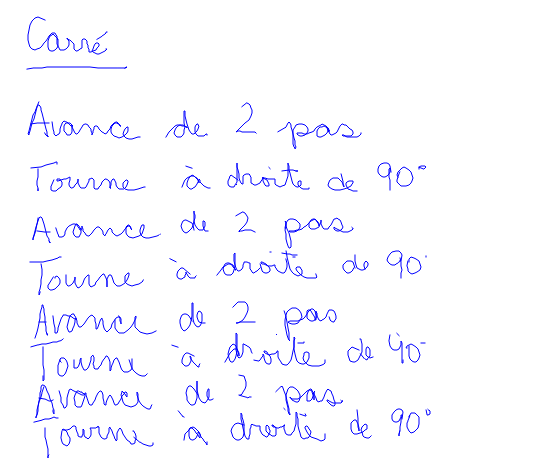 Carré
Avance de 2 pas
Tourne à droite de 90°
Avance de 2 pas
Tourne à droite de 90°
Avance de 2 pas
Tourne à droite de 90°
Avance de 2 pas
Tourne à droite de 90°